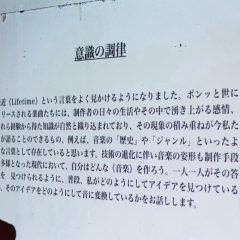 意識の調律
近（Lifetime）という言葉をよく見かけるようになりました。ポンッと世に
リースされる楽曲たちには、制作者の日々の生活やその中で湧き上がる感情、
れら経験から得た知識が自然と織り込まれており、その現象の積み重ねが今私た
が語ることのできるもの、例えば、音楽の「歴史」や「ジャンル」といったよ
な言葉として存在していると思います。技術の進化に伴い音楽の姿形も制作手段
多様となった現代において、自分はどんな《音楽》を作ろう。一人一人がその答
を見つけられるように、普段、私がどのようにしてアイデアを見つけている
、そのアイデアをどのようにして音に変換しているかをお話しします。